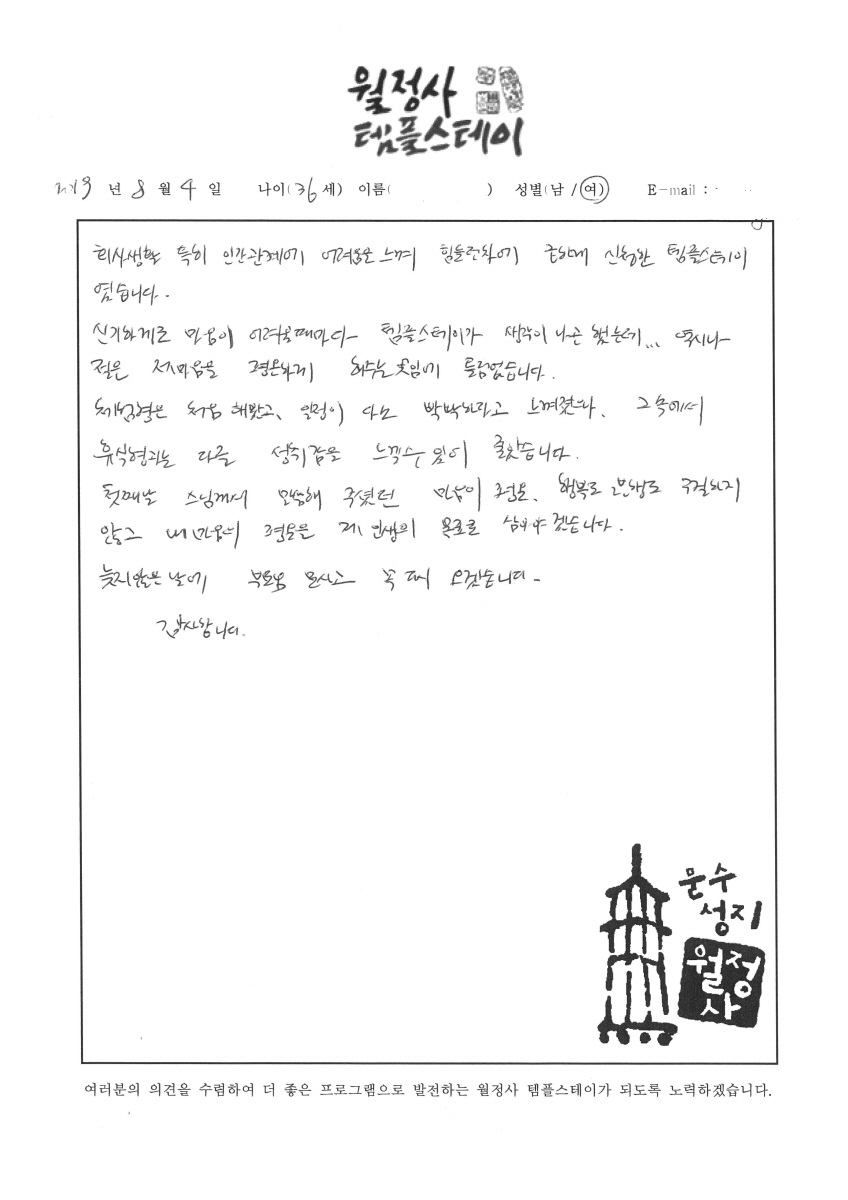 월정사
템플스테이
2013 년 8 월 4 일 나이(36 세) 이름( ) 성별(남 / 여) E-mail :
회사생활 특히 인간관계에 어려움을 느껴 힘들던차에 급하게 신청한 템플스테이
였습니다.
신기하게도 마음이 어려울때마다 템플스테이가 생각이 나곤 했는데... 역시나
절은 제마음을 평온하게 해주는 곳임에 틀림없습니다.
체험형은 처음 해봤고, 일정이 다소 빡빡하다고 느껴졌으나, 그속에서
휴식형과는 다른 성취감을 느낄수 있어 좋았습니다.
첫째날 스님께서 말씀해 주셨던 마음의 평온, 행복도 고행도 추구하지
않고 내 마음의 평온을 제 인생의 목표로 삼아야 겠습니다.
늦지않은 날에 부모님 모시고 꼭 다시 오겠습니다-
감사합니다.
문수
성지
월정
사
여러분의 의견을 수렴하여 더 좋은 프로그램으로 발전하는 월정사 템플스테이가 되도록 노력하겠습니다.